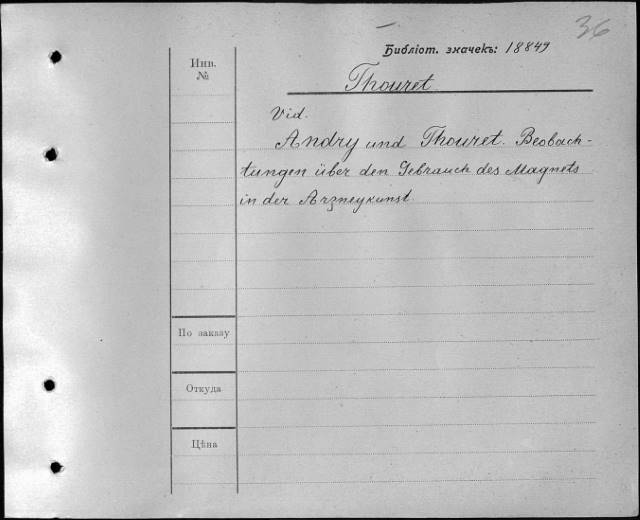 36
Библіот. значекъ: 18849
Инв.
№
Thouret
Vid.
Andry und Thouret. Beobach-
tungen über den Gebrauch des Magnets
in der Arzneykunst.
По заказу
Откуда
Цѣна